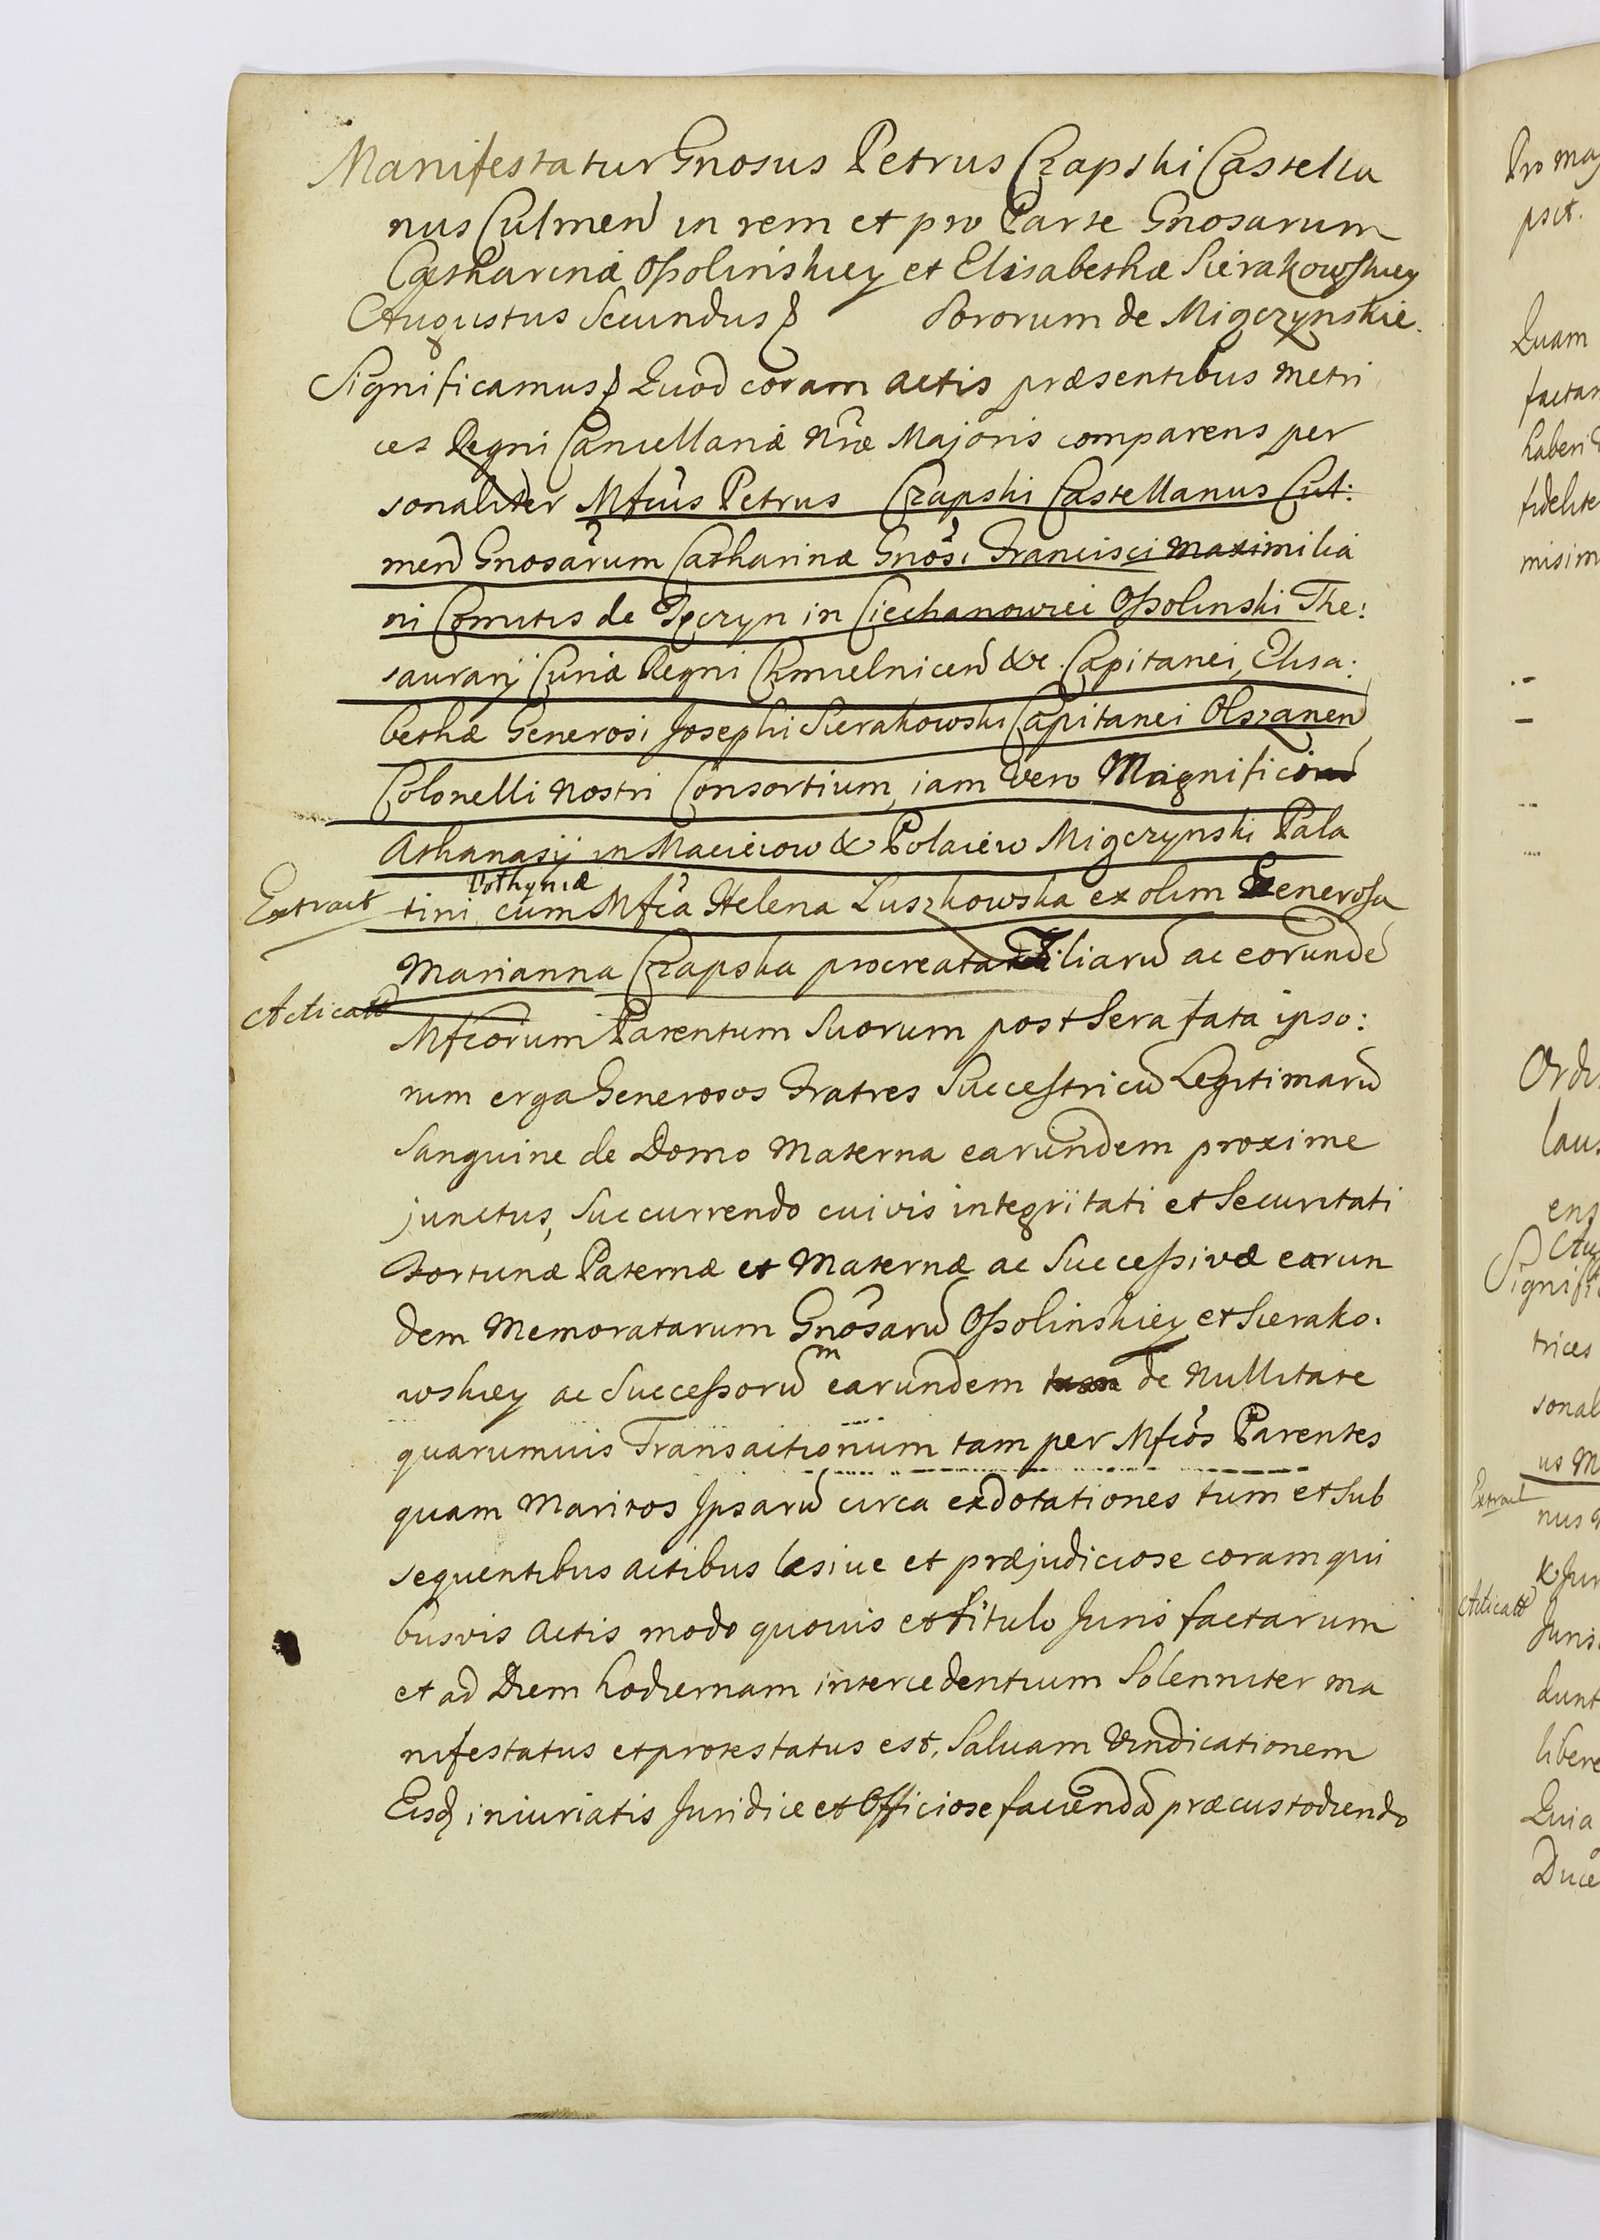 Manifestatur Gnosus Petrus Czapski Castella
nus Culmen in rem et pro Parte Gnosarum
Catharinæ Oßolinskiey et Elisabethæ Sierakowskiey
Augustus Secundus Sororum de Miączynskie.
Significamus Quod coram actis præsentibus Metri
ces Regni Cancellariæ Nræ Majoris comparens per
sonaliter Mfcus Petrus Czapski Castellanus Cul:
men Gnosarum Catharinæ Gnosi Francisci Maximilia
ni Comitis de Tęczyn in Ciechanowiec Oßolinski The:
saurarij Curiæ Regni Chmielnicen &c. Capitanei, Elisa:
bethæ Generosi Josephi Sierakowski Capitanei Olszanen
Colonelli Nostri Consortium, iam vero Magnifici
Athanasij in Macieiow & Polaiew Miączynski Pala
Extract
tini Volhyniæ cum Mfca Helena Łuszkowska ex olim Generosa
Marianna Czapska procreata Filiaru ac eorunde
Acticat
Mfcorum Parentum Suorum post Sera fata ipso:
rum erga Generosos Fratres Successtricu Legitimaru
Sanguine de Domo Materna earundem proxime
junctus, Succurrendo cuivis integritati et Securitati
Fortunæ Paternæ et Maternæ ac Succeßivæ earun
dem Memoratarum Gnosaru Oßolinskiey et Sierako.
wskiey ac Succeßoru earundem de Nullitate
quarumvis Transactionum tam per Mfcos Parentes
quam Maritos Ipsaru circa exdotationes tum et Sub
sequentibus actibus læsive et præjudiciose coram qui
busvis Actis modo quovis et titulo Juris factarum
et ad Diem hodiernam intercedentium Solenniter ma
nifestatus et protestatus est, Salvam Vindicationem
Eisq iniuriatis Juridice et Officiose faciendã præcustodiendo
Pro maj
psit.
Quam
factam
haberi
fidelite
misim
laus
ens
Signifi
trices
sonal
us M
Extract
nus
Acticat
Juris
dunt
libere
Quia